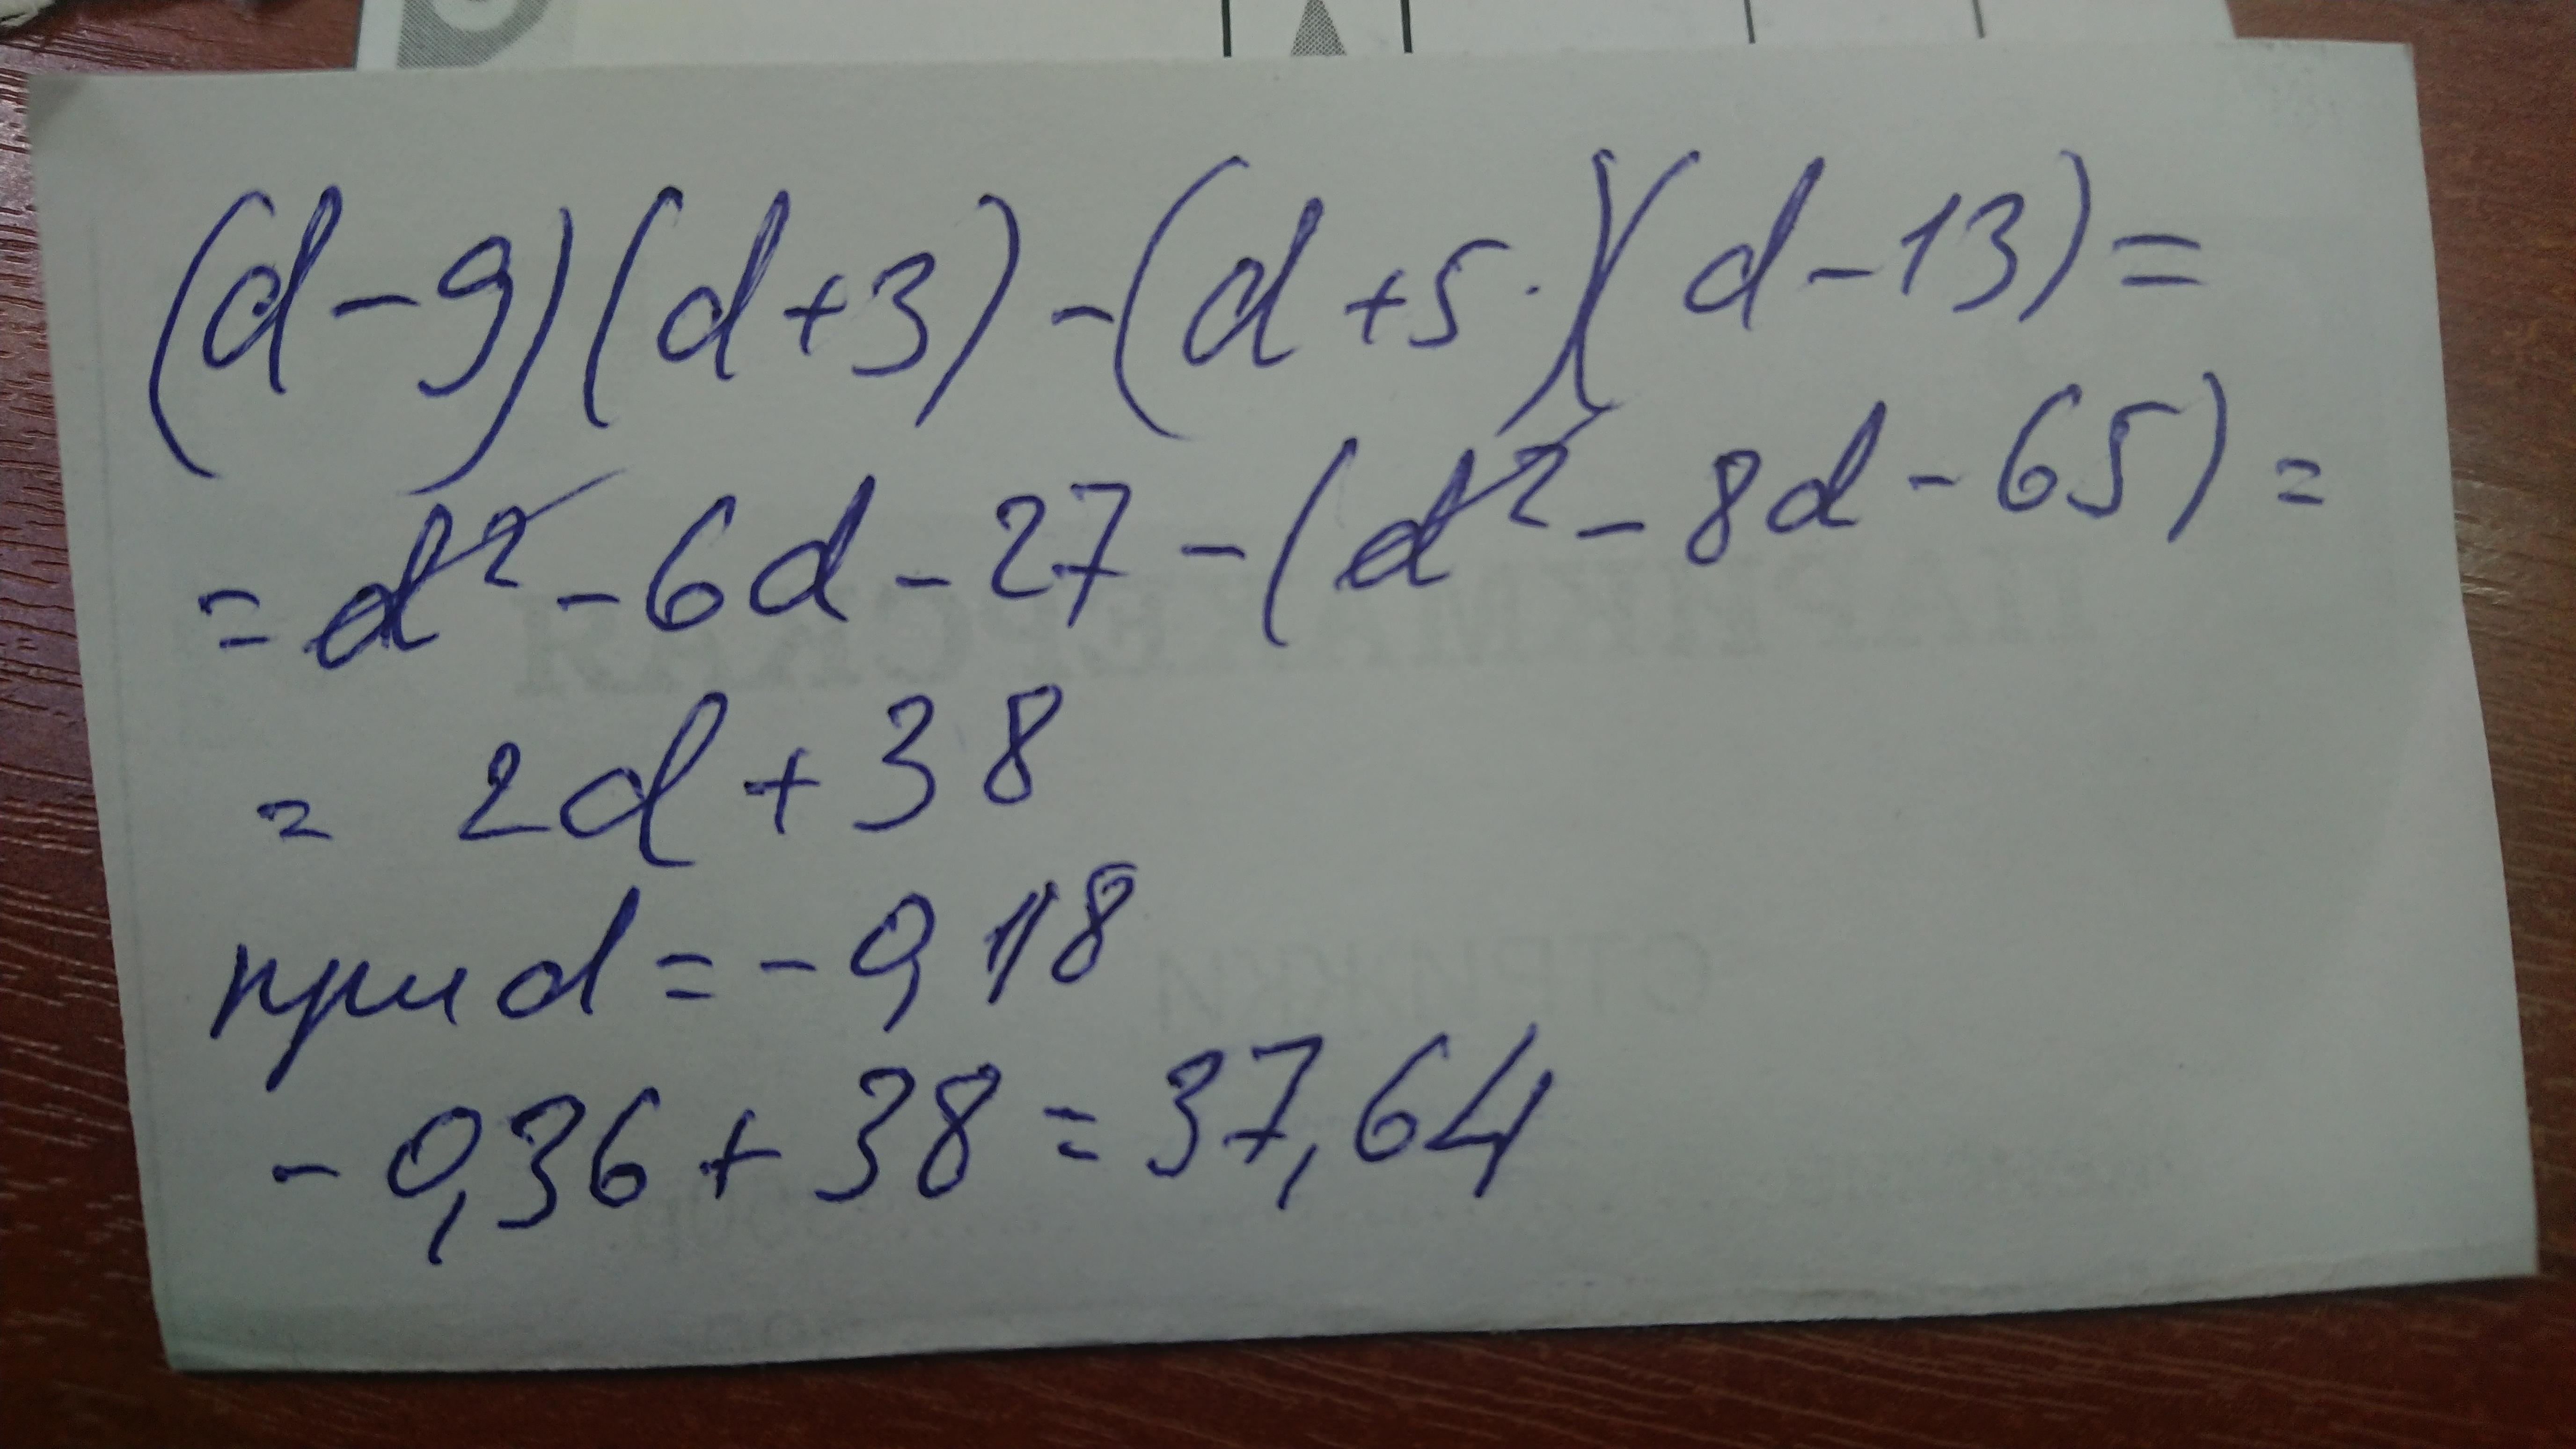 (d-9)(d+3)-(d+5·)(d-13)=
=d²-6d-27-(d²-8d-65)=
= 2d+38
при d=-0,18
-0,36+38=37,64